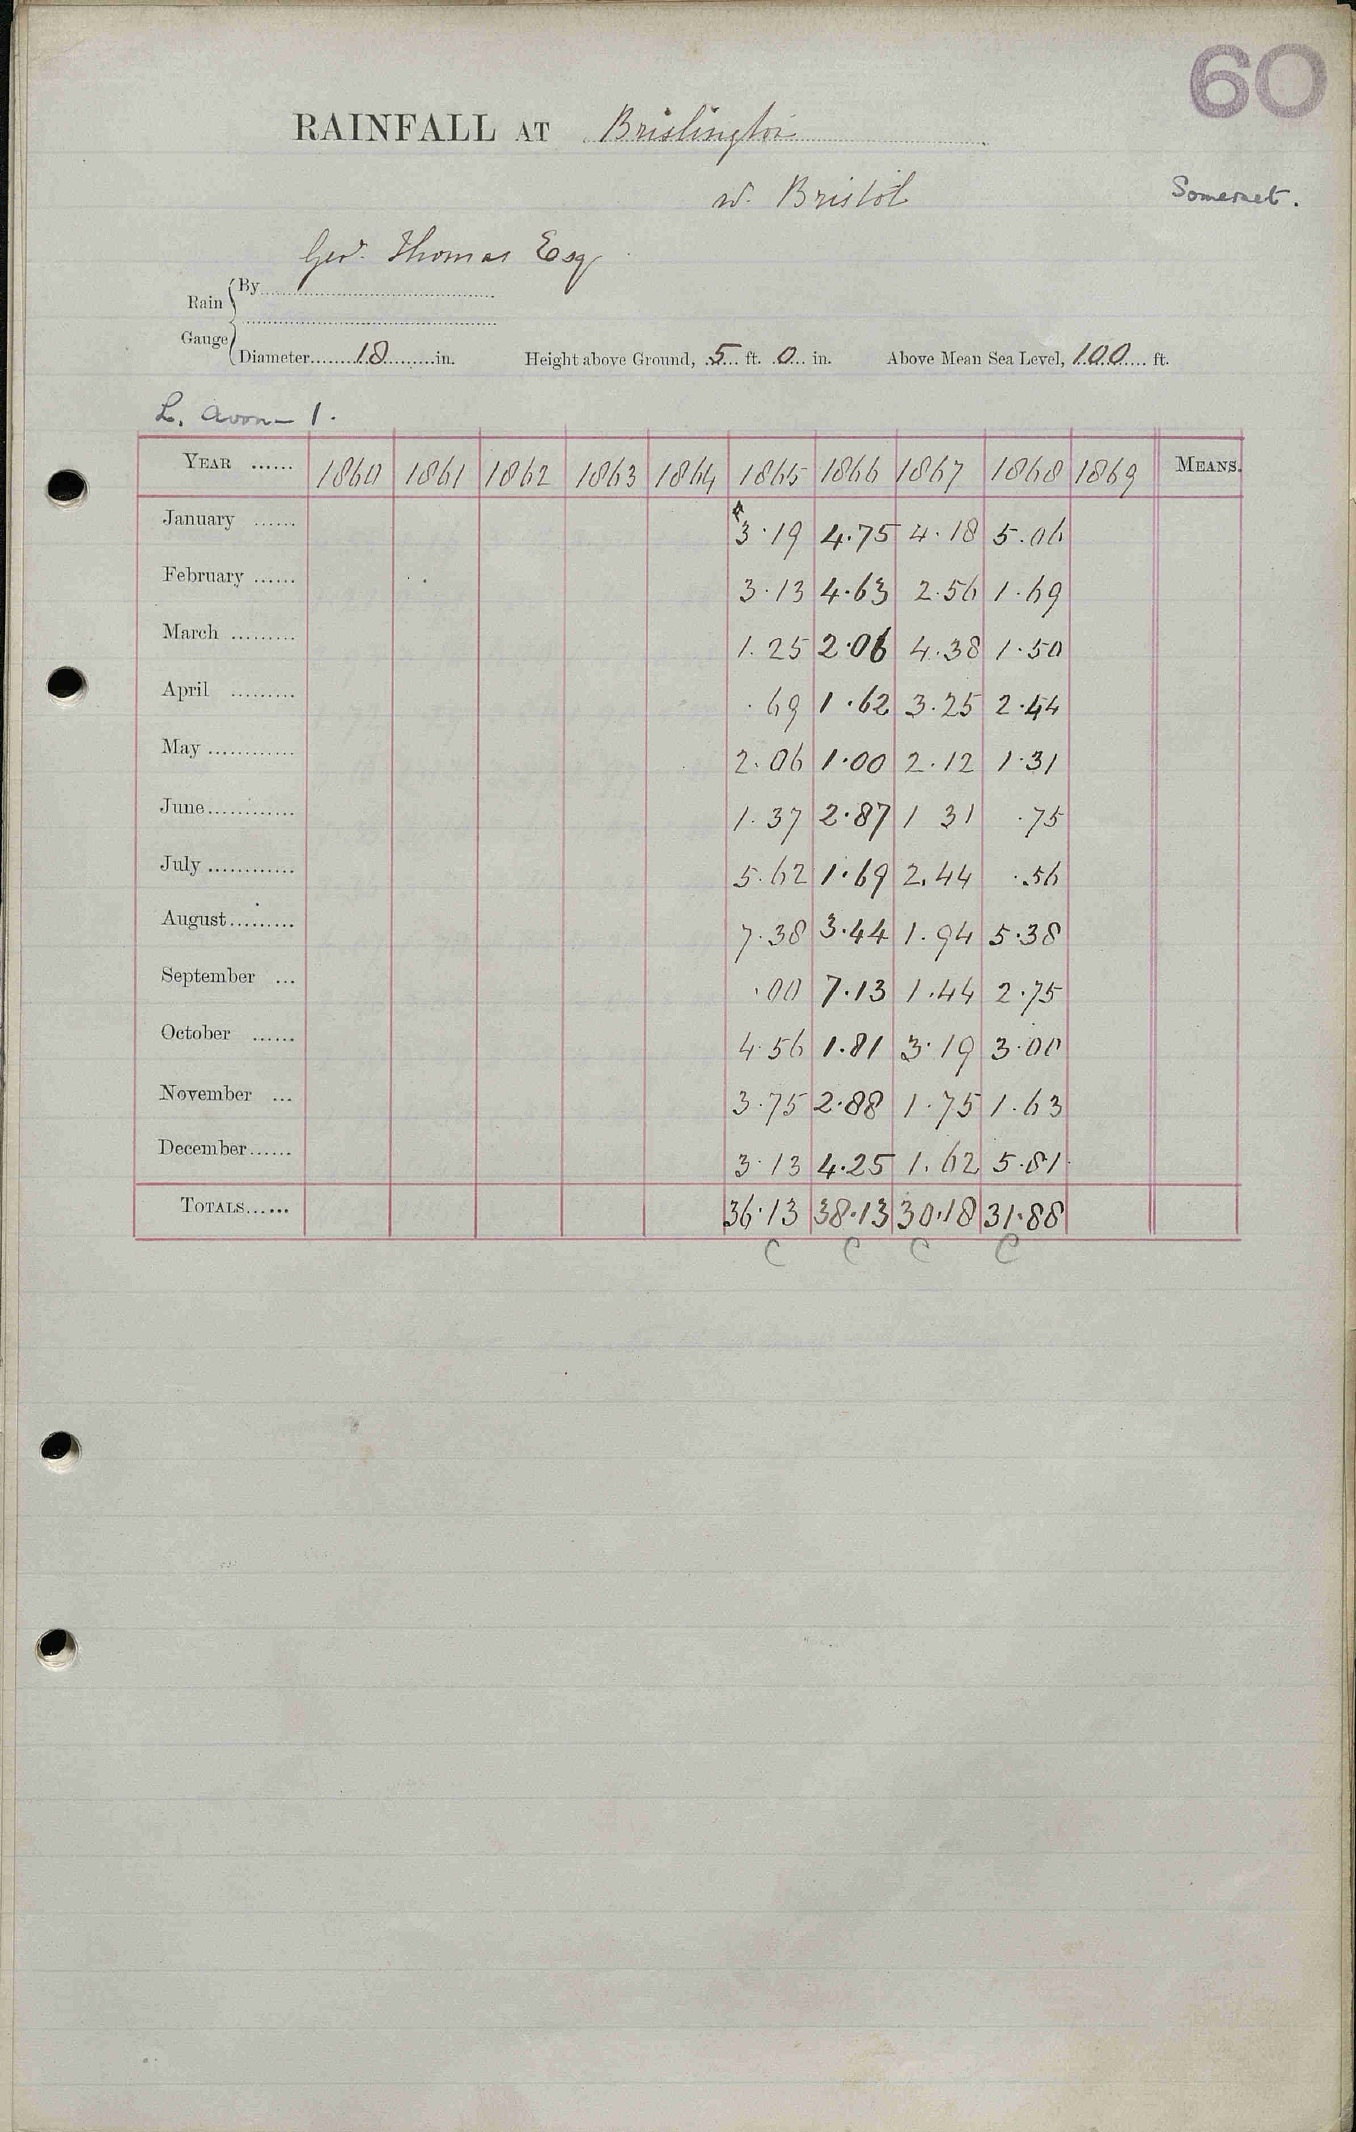 60
RAINFALL AT Brislington
nr. Bristol
Somerset.
Geo. Thomas Esq
Rain Gauge { By
Diameter 18 in. Height above Ground, 5 ft. 0 in. Above Mean Sea Level, 100 ft.
L. Avon – 1.
YEAR ...... 1860 1861 1862 1863 1864 1865 1866 1867 1868 1869 MEANS.
January ...... 3.19 4.75 4.18 5.06
February ...... 3.13 4.63 2.56 1.69
March ......... 1.25 2.06 4.38 1.50
April ......... .69 1.62 3.25 2.44
May ............ 2.06 1.00 2.12 1.31
June............ 1.37 2.87 1 31 .75
July ............ 5.62 1.69 2.44 .56
August......... 7.38 3.44 1.94 5.38
September ... .00 7.13 1.44 2.75
October ...... 4.56 1.81 3.19 3.00
November ... 3.75 2.88 1.75 1.63
December...... 3.13 4.25 1.62 5.81
TOTALS...... 36.13 38.13 30.18 31.88
C C C C